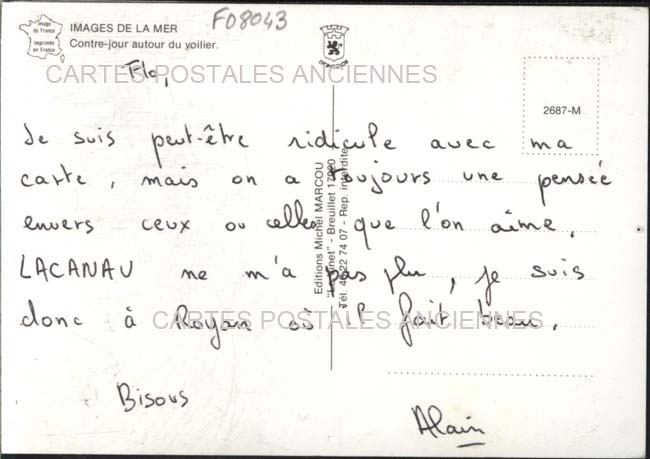 F08043
Image de France
Imprimée en France
IMAGES DE LA MER
Contre-jour autour du voilier.
LYONCOLOR
CARTES POSTALES ANCIENNES
2687-M
Flo,
Je suis peut-être ridicule avec ma
carte, mais on a toujours une pensée
envers ceux ou celles que l'on aime.
LACANAU ne m'a pas plu, je suis
donc à Royan où il fait beau.
CARTES POSTALES ANCIENNES
Bisous
Alain
Editions Michel MARCOU
- Breuillet 17920
Tél. 46 22 74 07 - Rep. interdite